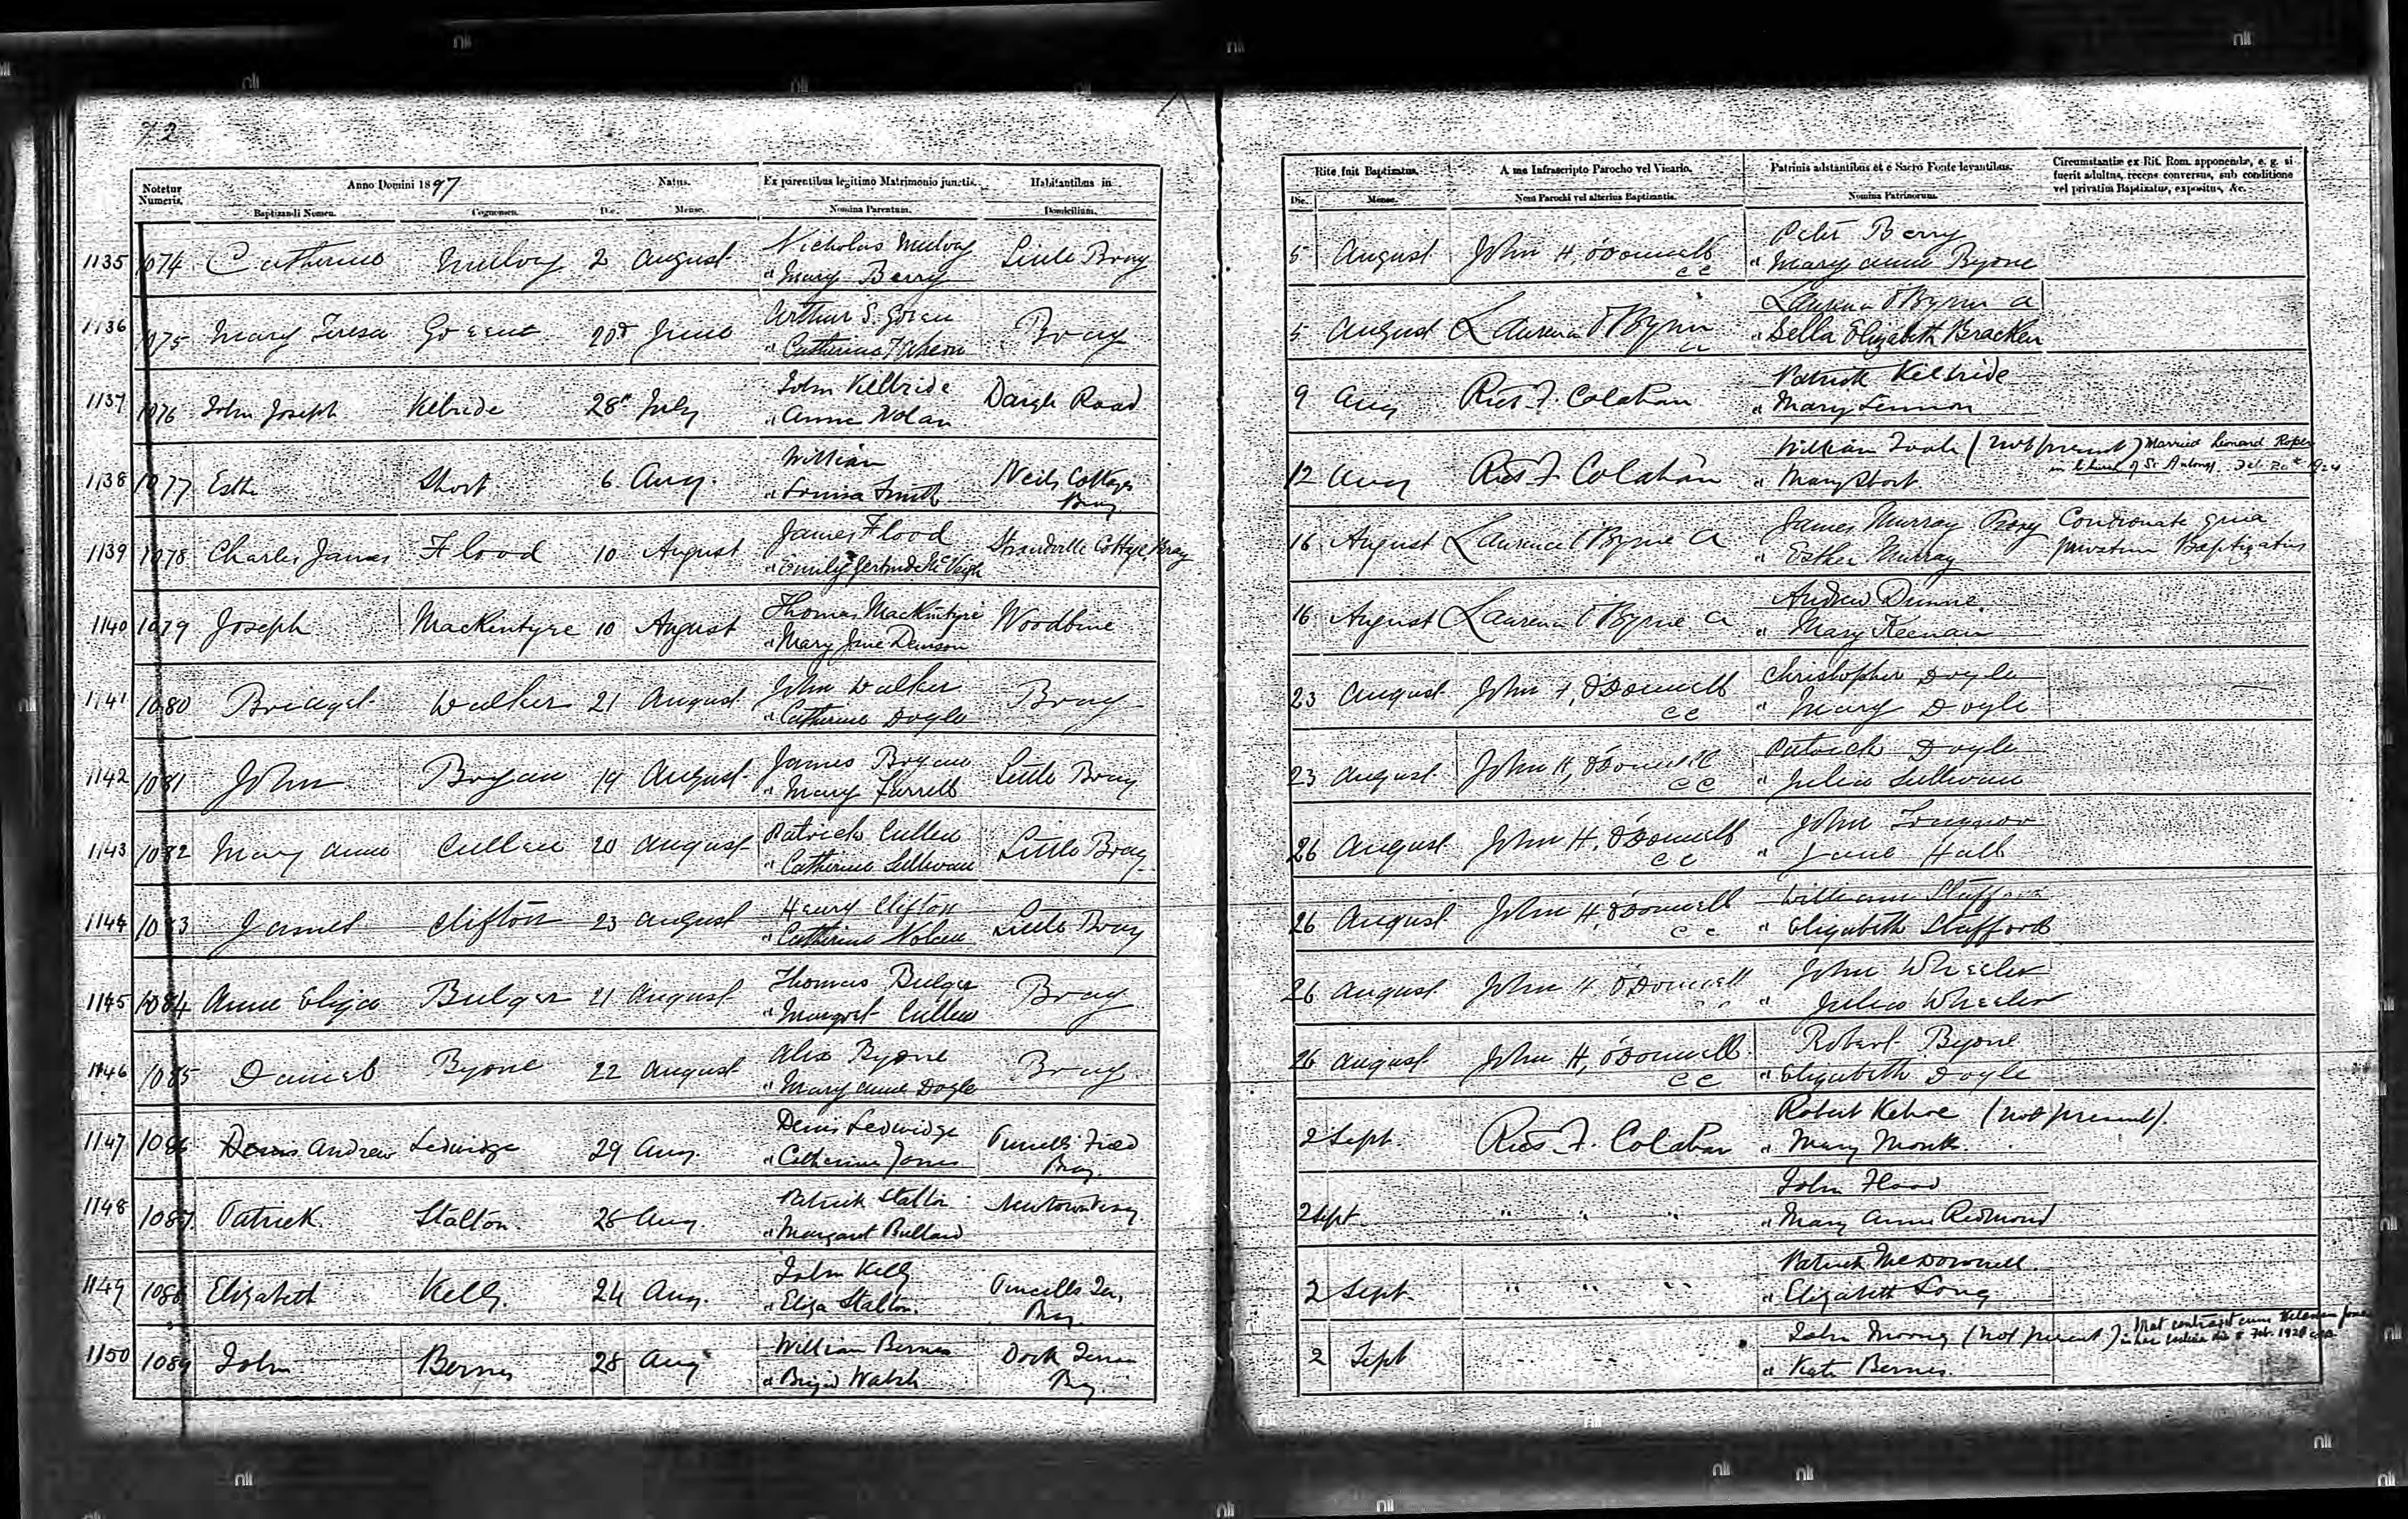 72
Notetur Numeris.
Anno Domini 1897
Natus.
Ex parentibus legitimo Matrimonio junctis.
Habitantibus in
Baptizandi Nomen.
Cognomen.
Die.
Mense.
Nomina Parentum.
Domicilium.
Rite fuit Baptizatus.
A me Infrascripto Parocho vel Vicario.
Patrinis adstantibus et e Sacro Fonte levantibus.
Circumstantiæ ex Rit. Rom. apponendæ, e. g. si
fuerit adultus, recens conversus, sub conditione
vel privatim Baptizatus, expositus, &c.
Die.
Mense.
Nom Parochi vel alterius Baptizantis.
Nomina Patrinorum.
1135 1074 Catherine Mulvey 2 August Nicholas Mulvey Little Bray 5 August John H. O'Donnell Peter Berry
" Mary Berry CC " Mary Anne Byrne
1136 1075 Mary Teresa 20 June Arthur S. Bray 5 August Laurence O'Byrne Laurence O'Byrne a
" Catherine a " Bella Elizabeth Bracken
1137 1076 John Joseph Kilbride 28" July John Kilbride Dargle Road 9 Aug Rich F. Colahan Patrick Kilbride
" Annie Nolan " Mary Lennon
1138 1077 Esthr Short 6 Aug. William Neils Cottages 12 Aug Rich F. Colahan William Toole (not present) Married Leonard Roper
" Louisa Smith Bray " Mary Short in Church of St Antony, Feb 20th 1924
1139 1078 Charles James Flood 10 August James Flood Strandville Cottage Bray 16 August Laurence O'Byrne a James Murray Proxy
" Emily Gertrude McVeigh " Esther Murray privatim Baptizatus
1140 1079 Joseph MacKintyre 10 August Thomas MacKintyre Woodbine 16 August Laurence O'Byrne a Andrew Dunne.
" Mary Jane " Mary Keenan
1141 1080 Bridget Walker 21 August John Walker Bray 23 August John H, O'Donnell Christopher Doyle
" Catherine Doyle CC " Mary Doyle
1142 1081 John Bryan 19 August James Bryan Little Bray 23 August John H, O'Donnell Patrick Doyle
" Mary Farrell CC " Julia Sullivan
1143 1082 Mary Anne Cullen 20 August Patrick Cullen Little Bray 26 August John H, O'Donnell John
" Catherine Sullivan CC " Jane Hall
1144 1083 James Clifton 23 August Henry Clifton Little Bray 26 August John H, O'Donnell William Stafford
" Catherine Nolan CC " Elizabeth Stafford
1145 1084 Anne Eliza Bulger 21 August Thomas Bulger Bray 26 August John H. O'Donnell John Wheeler
" Margret Cullen CC " Julia Wheeler
1146 1085 Daniel Byrne 22 August Alex Byrne Bray 26 August John H, O'Donnell Robert Byrne
" Mary Anne Doyle CC " Elizabeth Doyle
1147 1086 Denis Andrew Ledwidge 29 Aug. Denis Ledwidge Purcells Field 2 Sept. Rich F. Colahan Robert Kehoe (not present).
" Catherine Jones Bray. " Mary Monk.
1148 1087 Patrick Stalton. 28 Aug. Patrick Stalton 2 Sept " " " John Flood
" Margaret Bullard " Mary Anne Redmond
1149 1088 Elizabeth Kelly. 24 Aug. John Kelly Purcells Ter, 2 Sept. " " " Patrick McDonnell.
" Eliza Stalton. Bray. " Elizabeth Long
1150 1089 John Bernes 28 Aug William Bernes Dock Terrace 2 Sept " " John (not present)
" Brigid Walsh Bray. " Kate Bernes.
Mat contraxit cum Helenam Jones